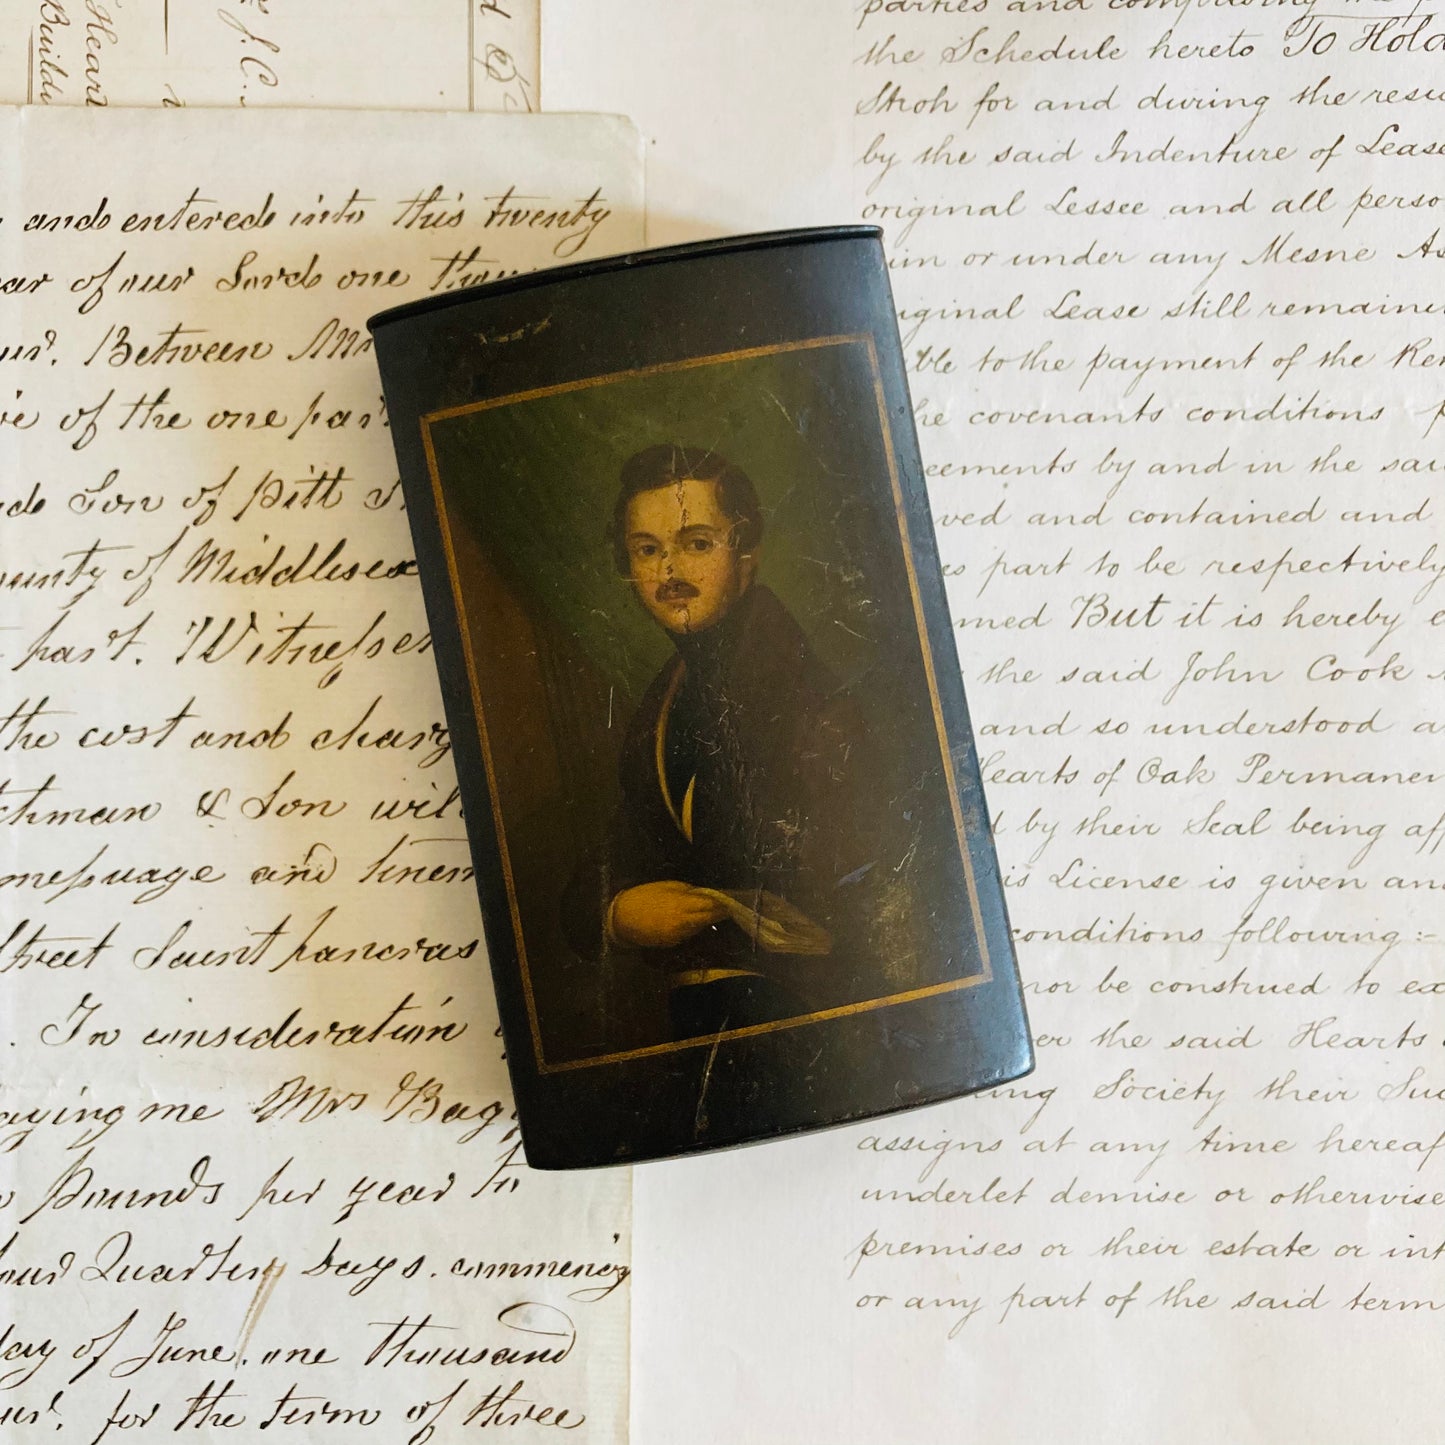 d &c
J. C.
Heart
Build
and entered into this twenty
ear of our Lord one thou
Between Mr
of the one part
Son of Pitt
ounty of Middlesex
part. Witnesseth
the cost and charg
tchman & Son will
messuage and tenem
Street Saint pancras
. In consideration
aying me Mrs Bag
Pounds per year to
four Quarterly days. commencing
day of June. one thousand
for the term of three
parties and
the Schedule hereto To Hold
Stroh for and during the resi
by the said Indenture of Lease
original Lessee and all perso
him or under any Mesne As
riginal Lease still remaini
ble to the payment of the Ren
he covenants conditions
eements by and in the sai
ved and contained and
es part to be respectively
med But it is hereby
the said John Cook
and so understood a
Hearts of Oak Permanen
d by their Seal being aff
is License is given and
conditions following :-
nor be construed to ex
er the said Hearts
ing Society their Suc
assigns at any time hereaf
underlet demise or otherwise
premises or their estate or int
or any part of the said term